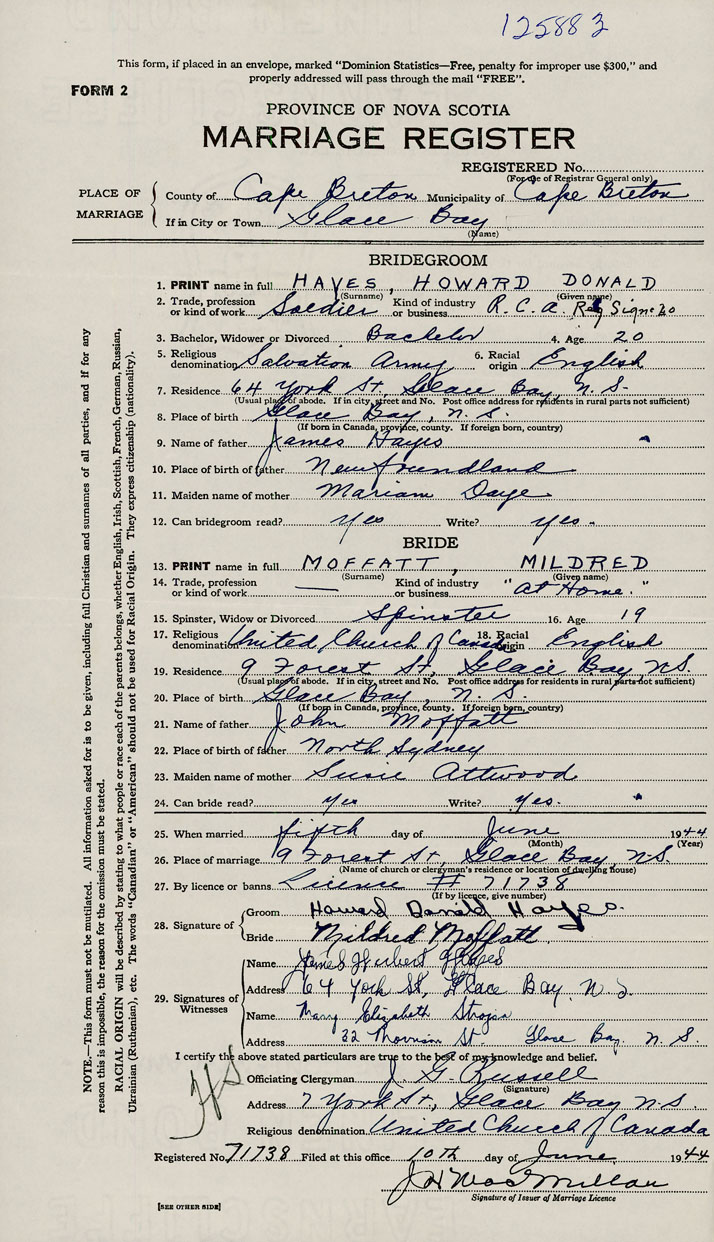 125883
This form, if placed in an envelope, marked "Dominion Statistics—Free, penalty for improper use $300," and
properly addressed will pass through the mail "FREE".
FORM 2
PROVINCE OF NOVA SCOTIA
MARRIAGE REGISTER
REGISTERED No.
(For use of Registrar General only)
PLACE OF MARRIAGE
County of Cape Breton Municipality of Cape Breton
If in City or Town Glace Bay
(Name)
BRIDEGROOM
1. PRINT name in full HAYES, HOWARD DONALD
(Surname) (Given name)
2. Trade, profession or kind of work Soldier Kind of industry or business R.C.A.
3. Bachelor, Widower or Divorced Bachelor 4. Age 20
5. Religious denomination Salvation Army 6. Racial origin English
7. Residence 64 York St, Glace Bay, N.S.
(Usual place of abode. If in city, street and No. Post office address for residents in rural parts not sufficient)
8. Place of birth Glace Bay, N.S.
(If born in Canada, province, county. If foreign born, country)
9. Name of father James Hayes
10. Place of birth of father Newfoundland
11. Maiden name of mother Mariam
12. Can bridegroom read? yes Write? yes.
BRIDE
13. PRINT name in full MOFFATT, MILDRED
(Surname) (Given name)
14. Trade, profession or kind of work — Kind of industry or business "at Home."
15. Spinster, Widow or Divorced Spinster 16. Age 19
17. Religious denomination United Church of Canada 18. Racial origin English
19. Residence 9 Forest St, Glace Bay, N.S.
(Usual place of abode. If in city, street and No. Post office address for residents in rural parts not sufficient)
20. Place of birth Glace Bay, N.S.
(If born in Canada, province, county. If foreign born, country)
21. Name of father John Moffatt
22. Place of birth of father North Sydney
23. Maiden name of mother Susie Attwood
24. Can bride read? yes Write? yes.
25. When married fifth day of June 1944
(Month) (Year)
26. Place of marriage 9 Forest St, Glace Bay, N.S.
(Name of church or clergyman's residence or location of dwelling house)
27. By licence or banns Licence # 71738
(If by licence, give number)
28. Signature of
Groom Howard Donald Hayes.
Bride Mildred Moffatt.
29. Signatures of Witnesses
Name James Herbert Hayes
Address 64 York St, Glace Bay, N.S.
Name Mary Elizabeth
Address 32 St. Glace Bay. N.S.
I certify the above stated particulars are true to the best of my knowledge and belief.
Officiating Clergyman J G Russell
(Signature)
Address 7 York St, Glace Bay N.S.
Religious denomination United Church of Canada
Registered No. 71738 Filed at this office 10th day of June 1944
J H MacMillan
Signature of Issuer of Marriage Licence
[SEE OTHER SIDE]
NOTE.—This form must not be mutilated. All information asked for is to be given, including full Christian and surnames of all parties, and if for any
reason this is impossible, the reason for the omission must be stated.
RACIAL ORIGIN will be described by stating to what people or race each of the parents belongs, whether English, Irish, Scottish, French, German, Russian,
Ukrainian (Ruthenian), etc. The words "Canadian" or "American" should not be used for Racial Origin. They express citizenship (nationality).